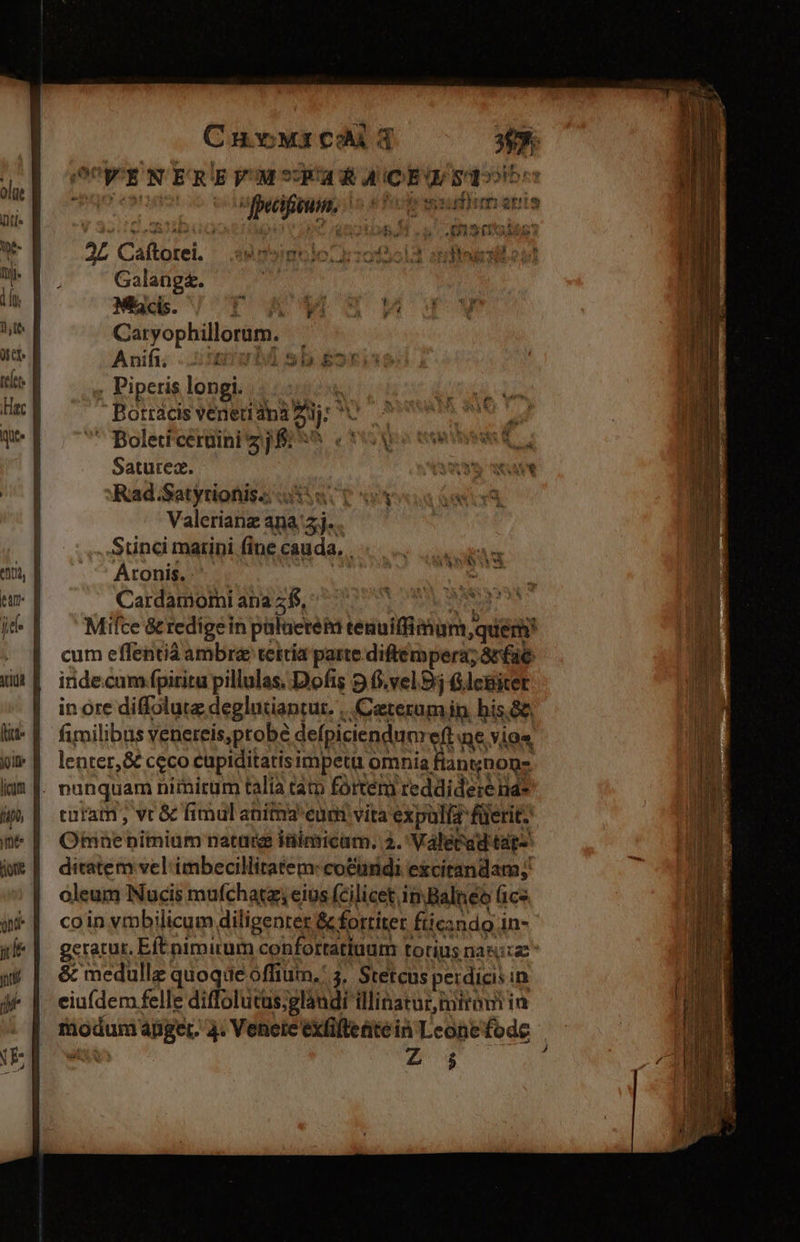 CHYMICA
VENEREVM PARACELSI
specificum.
♃ Castorei.
Galangæ.
Macis.
Caryophillorum.
Anisi,
Piperis longi.
Borracis veneti ana ʒij:
Boleti ceruini ʒjß:
Satureæ.
Rad. Satyrionis.
Valerianæ ana ʒj.
Stinci marini sine cauda,
Aronis.
Cardamomi ana ʒß,
Misce & redige in puluerem tenuissimum, quem
cum essentiâ ambræ tertia parte distempera; & fac
inde cum spiritu pillulas. Dosis ℈ß. vel ℈j
in ore dissolutæ deglutiantur. Cæterum in his &
similibus venereis, probè despiciendum est ne vio-
lenter, & cęco cupiditatis impetu omnia fiant: non-
nunquam nimirum talia tam fortem reddidere na-
turam, vt & simul anima cum vita expulsa fuerit.
Omne nimium naturæ inimicum. 2. Valet ad tar-
ditatem vel imbecillitatem coëundi excitandam,
oleum Nucis muschatæ; eius scilicet in Balneo sic-
co in vmbilicum diligenter & fortiter fricando in-
geratur. Est nimirum confortatiuum totius naturæ
& medullæ quoque ossium. 3. Stercus perdicis in
eiusdem felle dissolutus; glandi illinatur, mirum in
modum auget. 4. Venere existente in Leone fode
Z
olue
Hæc
que-